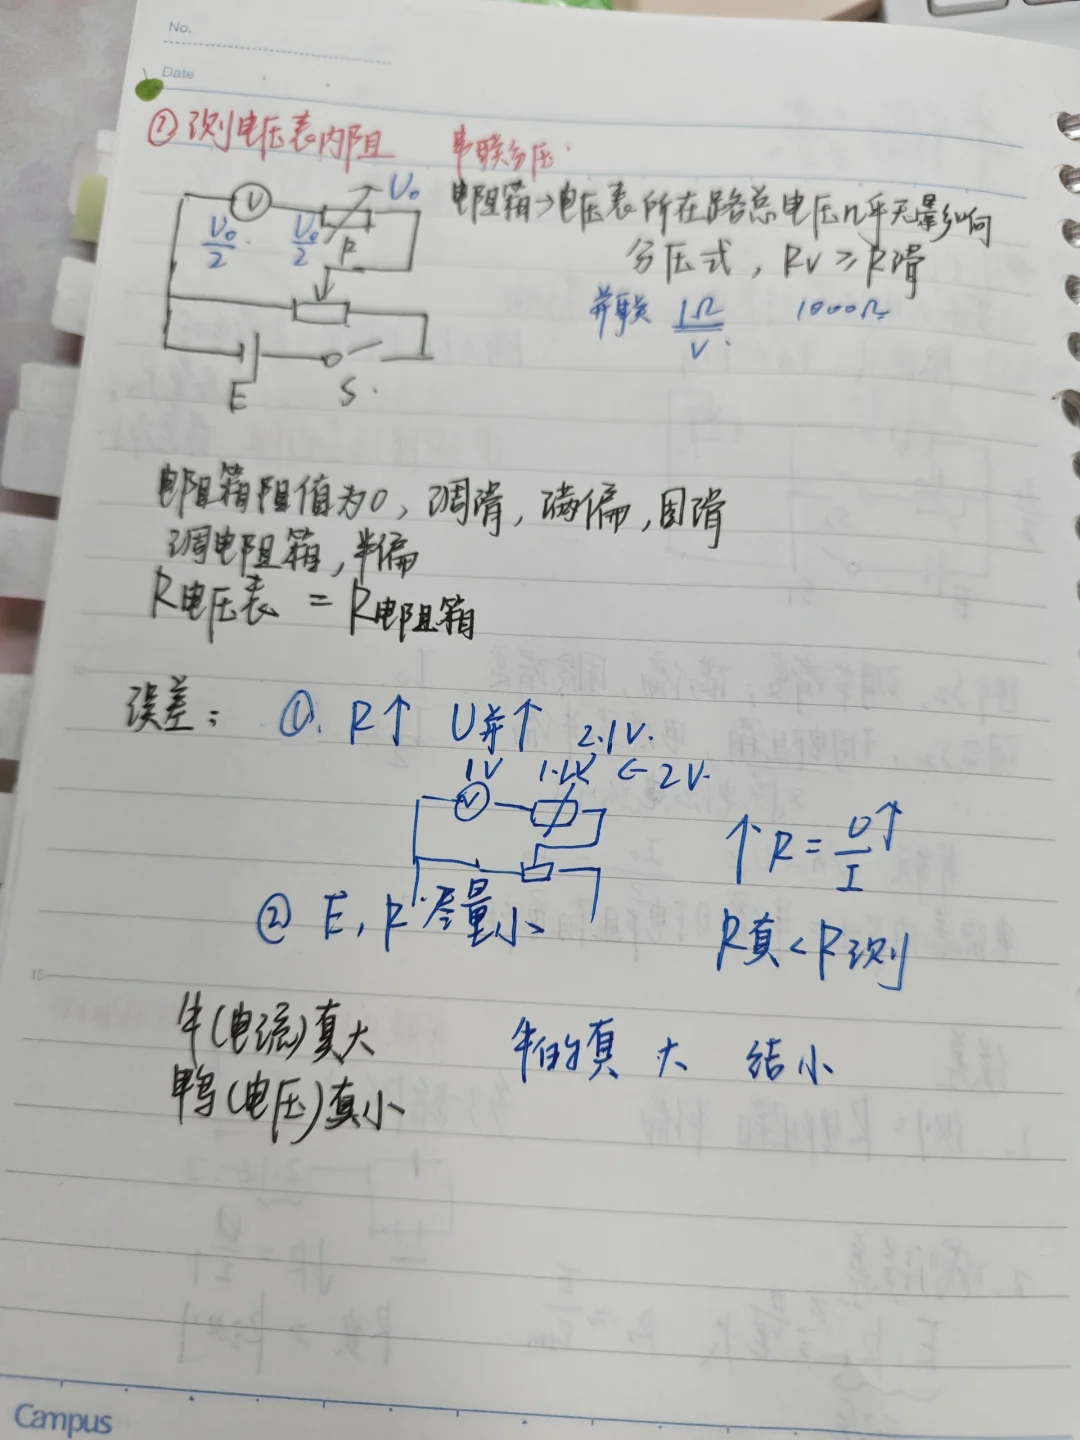 No.
Date
② 测电压表内阻 串联分压.
V U₀
U₀/2 U₀/2 R
E S.
电阻箱→电压表所在路总电压几乎无影响
分压式, Rv≥R滑
并联 1Ω/V. 1000Ω
电阻箱阻值为0, 调滑, 满偏, 固滑
调电阻箱, 半偏
R电压表 = R电阻箱
误差: ①. R↑ U并↑ 2.1V.
1V 1.1V ←2V.
V
↑R = U↑/I
② E, R 尽量小
R真<R测
牛(电流)真大 半的真 大 结小
鸭(电压)真小
15
Campus